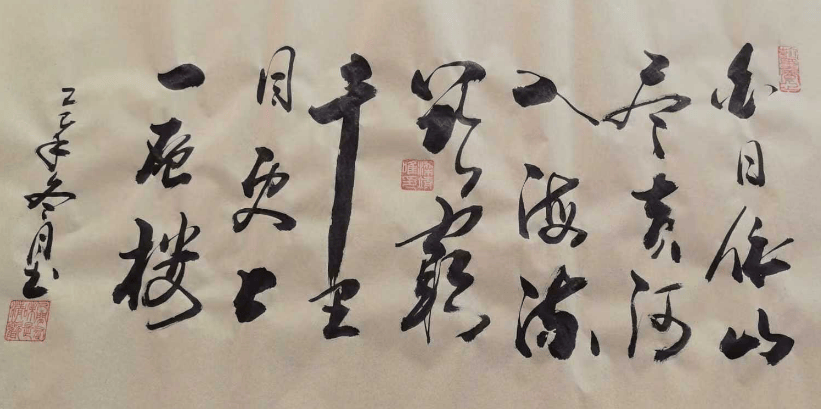 白日依山
尽黄河
入海流
欲穷
千里
目更上
一层楼
乙巳年冬月书